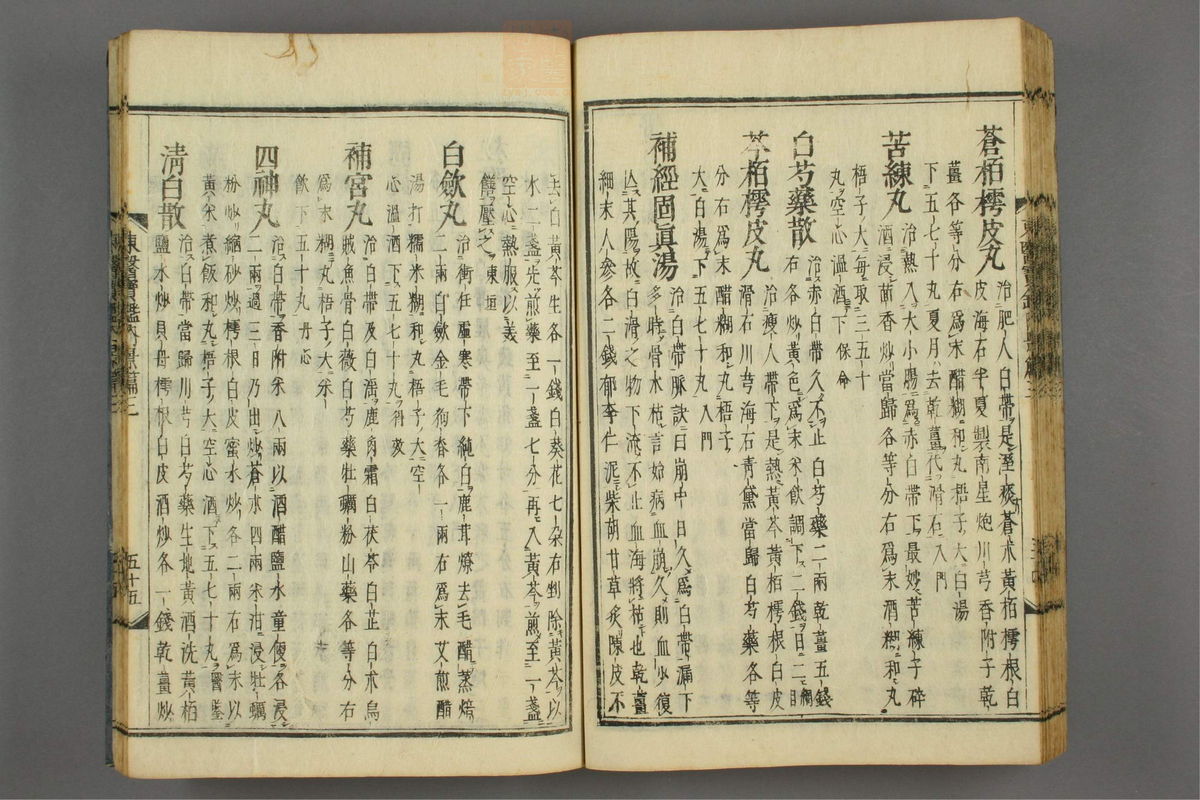 蒼栢樗皮丸 治肥人白帶是濕痰蒼朮黃栢樗根白
皮海石半夏製南星炮川芎香附子乾
薑各等分右爲末醋糊和丸梧子大白湯
下五七十丸夏月去乾薑代滑石入門
苦練丸 治熱入大小腸爲赤白帶下最妙苦練子碎
酒浸茴香炒當歸各等分右爲末酒糊和丸
梧子大每取三五十
丸空心溫酒下保命
白芍藥散 治赤白帶久不止白芍藥二兩乾薑五錢
右各炒黃色爲末米飮調下二錢日二綱目
芩栢樗皮丸 治瘦人帶下是熱黃芩黃栢樗根白皮
滑石川芎海石靑黛當歸白芍藥各等
分右爲末醋糊和丸梧子
大白湯下五七十丸入門
補經固眞湯 治白帶脈訣曰崩中日久爲白帶漏下
多時骨水枯言始病血崩久則血少復
亾其陽故白滑之物下流不止血海將枯也乾薑
細末人參各二錢郁李仁泥柴胡甘草炙陳皮不
去白黃芩生各一錢白葵花七朶右剉除黃芩以
水二盞先煎藥至一盞七分再入黃芩煎至一盞
空心熱服以美
饍壓之東垣
白斂丸 治衝任虛寒帶下純白鹿茸燎去毛醋蒸焙
二兩白斂金毛狗脊各一兩右爲末艾煎醋
湯打糯米糊和丸梧子大空
心溫酒下五七十丸
補宮丸 治白帶及白淫鹿角霜白茯苓白芷白朮烏
賊魚骨白薇白芍藥牡礪粉山藥各等分右
爲末糊丸梧子大米
飮下五十丸丹心
四神丸 治白帶香附米八兩以酒醋鹽水童便各浸
二兩過三日乃出炒蒼朮四兩米泔浸牡蠣
粉炒縮砂炒樗根白皮蜜水炒各二兩右爲末以
黃米煮飯和丸梧子大空心酒下五七十丸醫鑑
淸白散 治白帶當歸川芎白芍藥生地黃酒洗黃栢
鹽水炒貝母樗根白皮酒炒各一錢乾薑炒
東醫寶鑑內景篇三
五十五